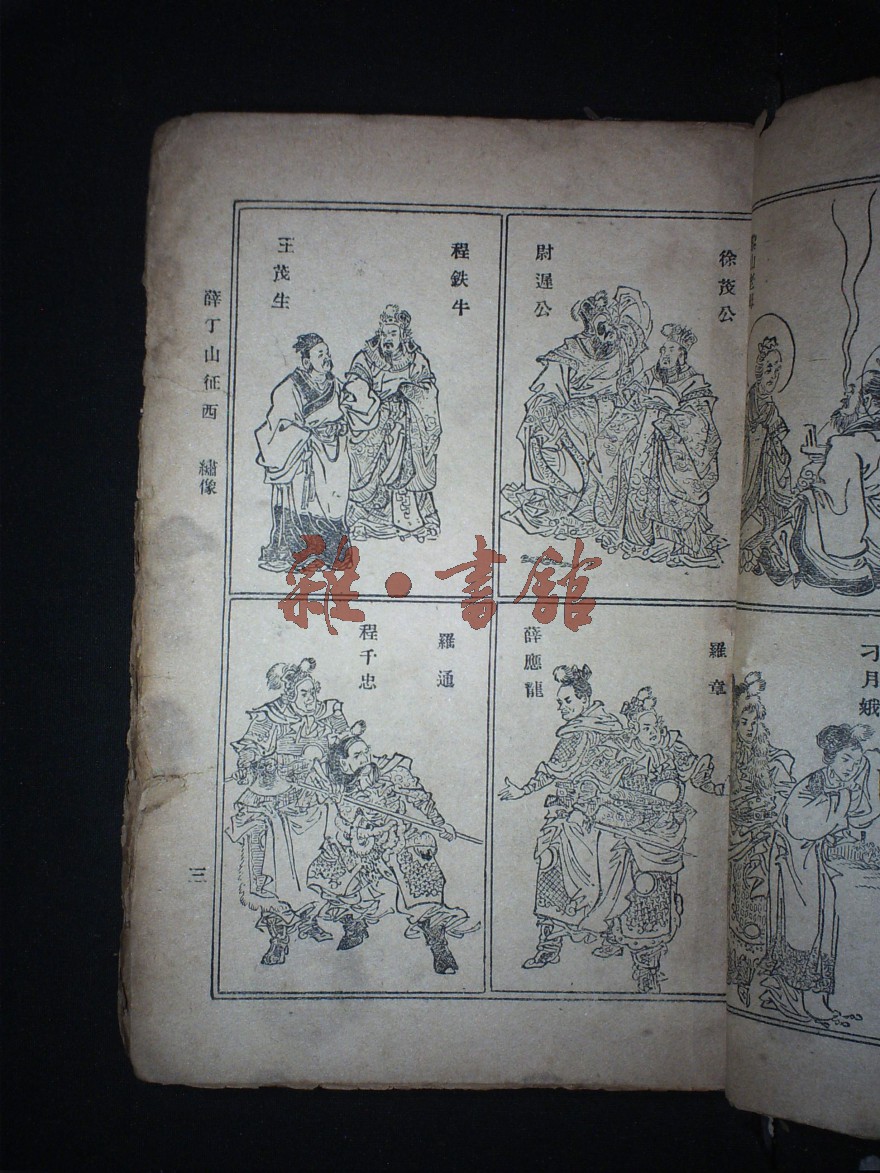 徐茂公
尉遲公
程鉄牛
王茂生
羅章
薛應龍
羅通
程千忠
薛丁山征西 繡像
三
刁月娥
雜·書館